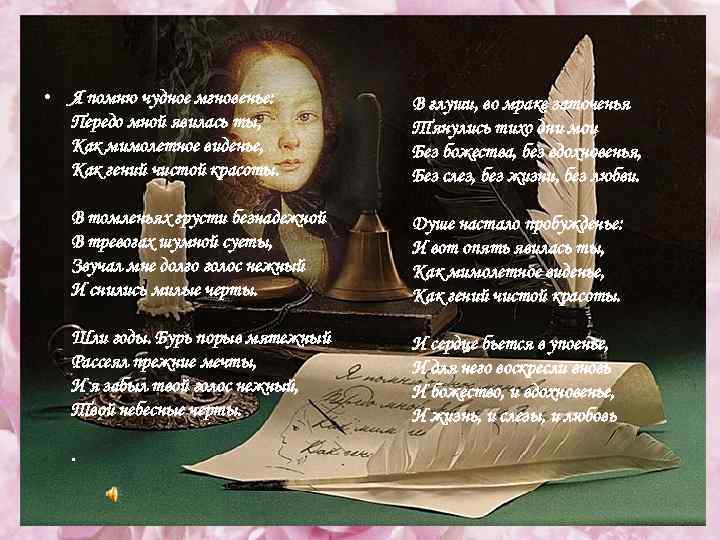 • Я помню чудное мгновенье:
Передо мной явилась ты,
Как мимолетное виденье,
Как гений чистой красоты.

В томленьях грусти безнадежной
В тревогах шумной суеты,
Звучал мне долго голос нежный
И снились милые черты.

Шли годы. Бурь порыв мятежный
Рассеял прежние мечты,
И я забыл твой голос нежный,
Твой небесные черты.

.

В глуши, во мраке заточенья
Тянулись тихо дни мои
Без божества, без вдохновенья,
Без слез, без жизни, без любви.

Душе настало пробужденье:
И вот опять явилась ты,
Как мимолетное виденье,
Как гений чистой красоты.

И сердце бьется в упоенье,
И для него воскресли вновь
И божество, и вдохновенье,
И жизнь, и слезы, и любовь

Я помн
Передо мно
Как мим
Как ген